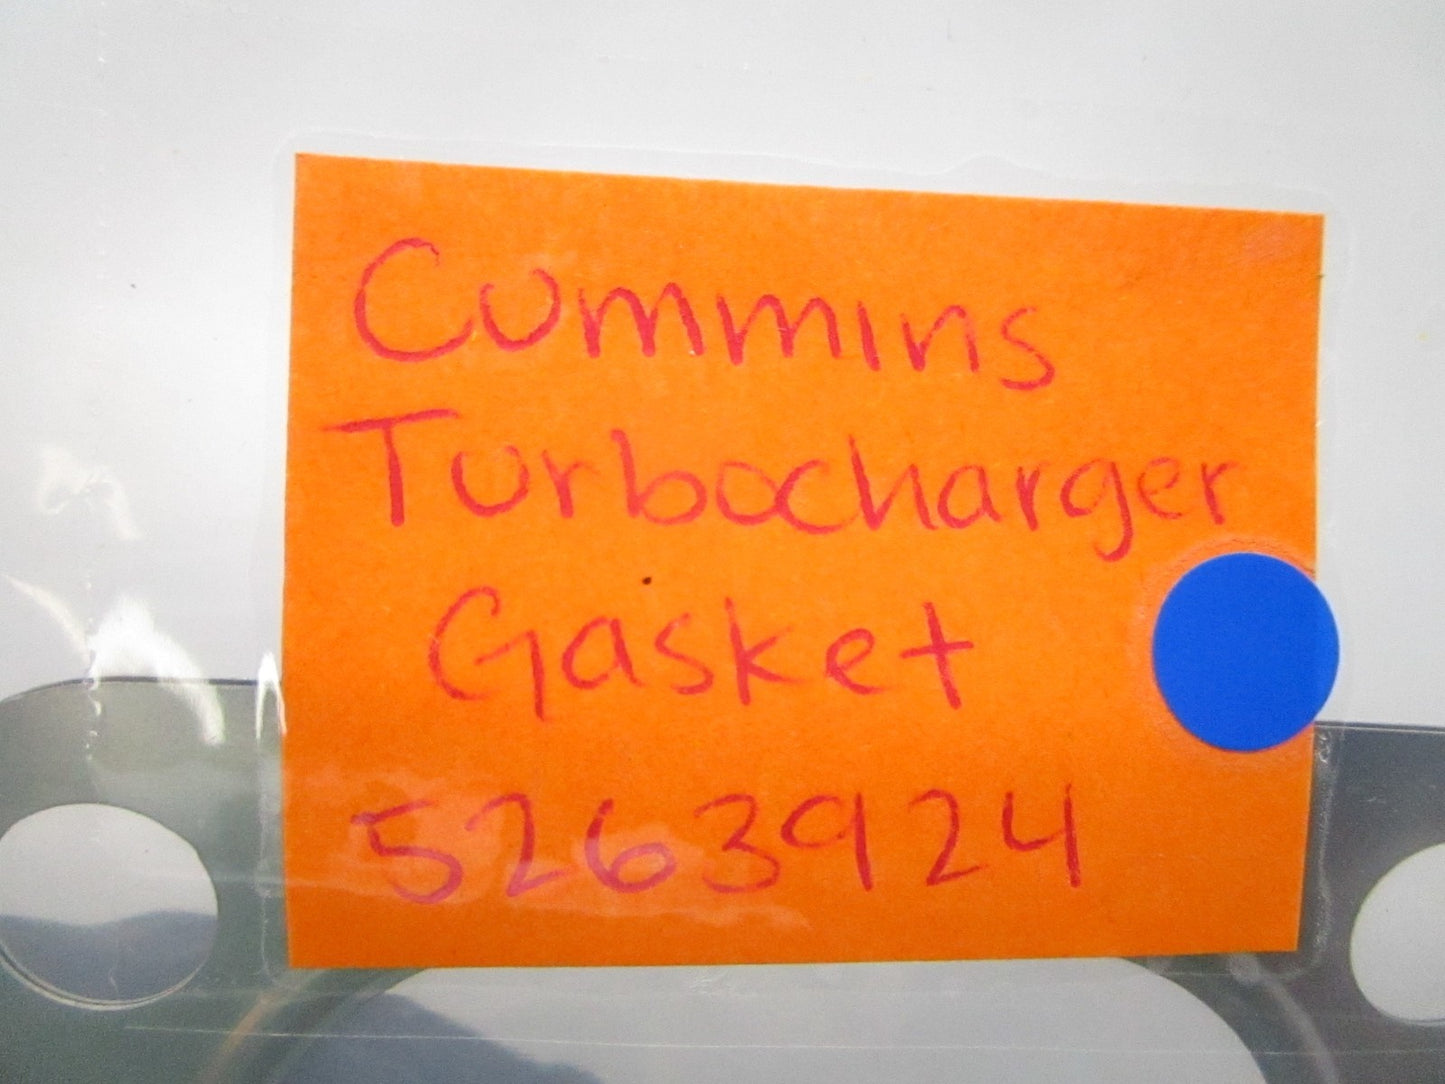 Cummins
Turbocharger
Gasket
5263924